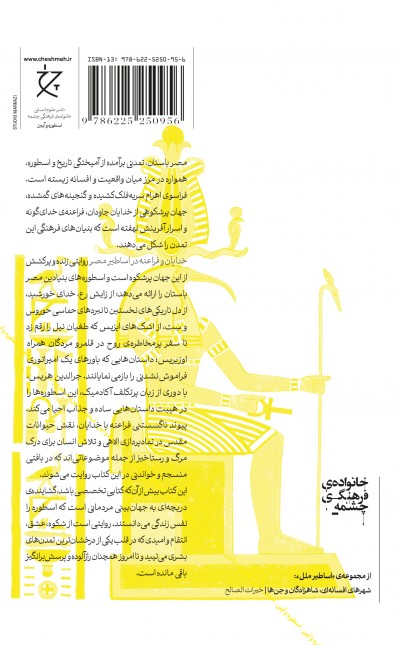 ISBN-13: 978-622-5250-95-6
9 786225 250956
www.cheshmeh.ir
ناشر علوم انسانی
خانواده‌ی فرهنگی چشمه
اسطوره و آیین
STUDIO MARKAZI
مصر باستان، تمدنی برآمده از آمیختگی تاریخ و اسطوره،
همواره در مرز میان واقعیت و افسانه زیسته است.
فراسوی اهرام سربه‌فلک‌کشیده و گنجینه‌های گمشده،
جهان پرشکوهی از خدایان جاودان، فراعنه‌ی خدای‌گونه
و اسرار آفرینش نهفته است که بنیان‌های فرهنگی این
تمدن را شکل می‌دهند.
خدایان و فراعنه در اساطیر مصر روایتی زنده و پرکشش
از این جهان پرشکوه است و اسطوره‌های بنیادین مصر
باستان را ارائه می‌دهد: از زایش رع، خدای خورشید،
از دل تاریکی‌های نخستین تا نبردهای حماسی حوروس
و ست، از اشک‌های ایزیس که طغیان نیل را رقم زد
تا سفر پرمخاطره‌ی روح در قلمرو مردگان همراه
اوزیریس؛ داستان‌هایی که باورهای یک امپراتوری
فراموش‌نشدنی را بازمی‌نمایانند. جرالدین هریس،
با دوری از زبان پرتکلف آکادمیک، این اسطوره‌ها را
در هیبت داستان‌هایی ساده و جذاب احیا می‌کند.
پیوند ناگسستنی فراعنه با خدایان، نقش حیوانات
مقدس در نمادپردازی الاهی و تلاش انسان برای درک
مرگ و رستاخیز از جمله موضوعاتی‌اند که در بافتی
منسجم و خواندنی در این کتاب روایت می‌شوند.
این کتاب بیش از آن‌که کتابی تخصصی باشد، گشاینده‌ی
دریچه‌ای به جهان‌بینی مردمانی است که اسطوره را
نفس زندگی می‌دانستند. روایتی است از شکوه، عشق،
انتقام و امیدی که در قلب یکی از درخشان‌ترین تمدن‌های
بشری می‌تپید و تا امروز همچنان رازآلوده و پرسش‌برانگیز
باقی مانده است.
خانواده‌ی
فرهنگی
چشمه
از مجموعه‌ی «اساطیر ملل»:
شهرهای افسانه‌ای، شاهزادگان و جن‌ها | خیرات الصالح